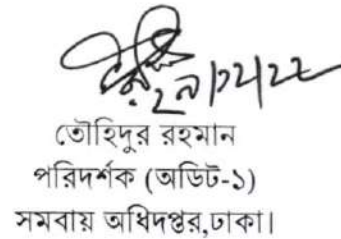 ২৯/১২/২২
তৌহিদুর রহমান
পরিদর্শক (অডিট-১)
সমবায় অধিদপ্তর,ঢাকা।